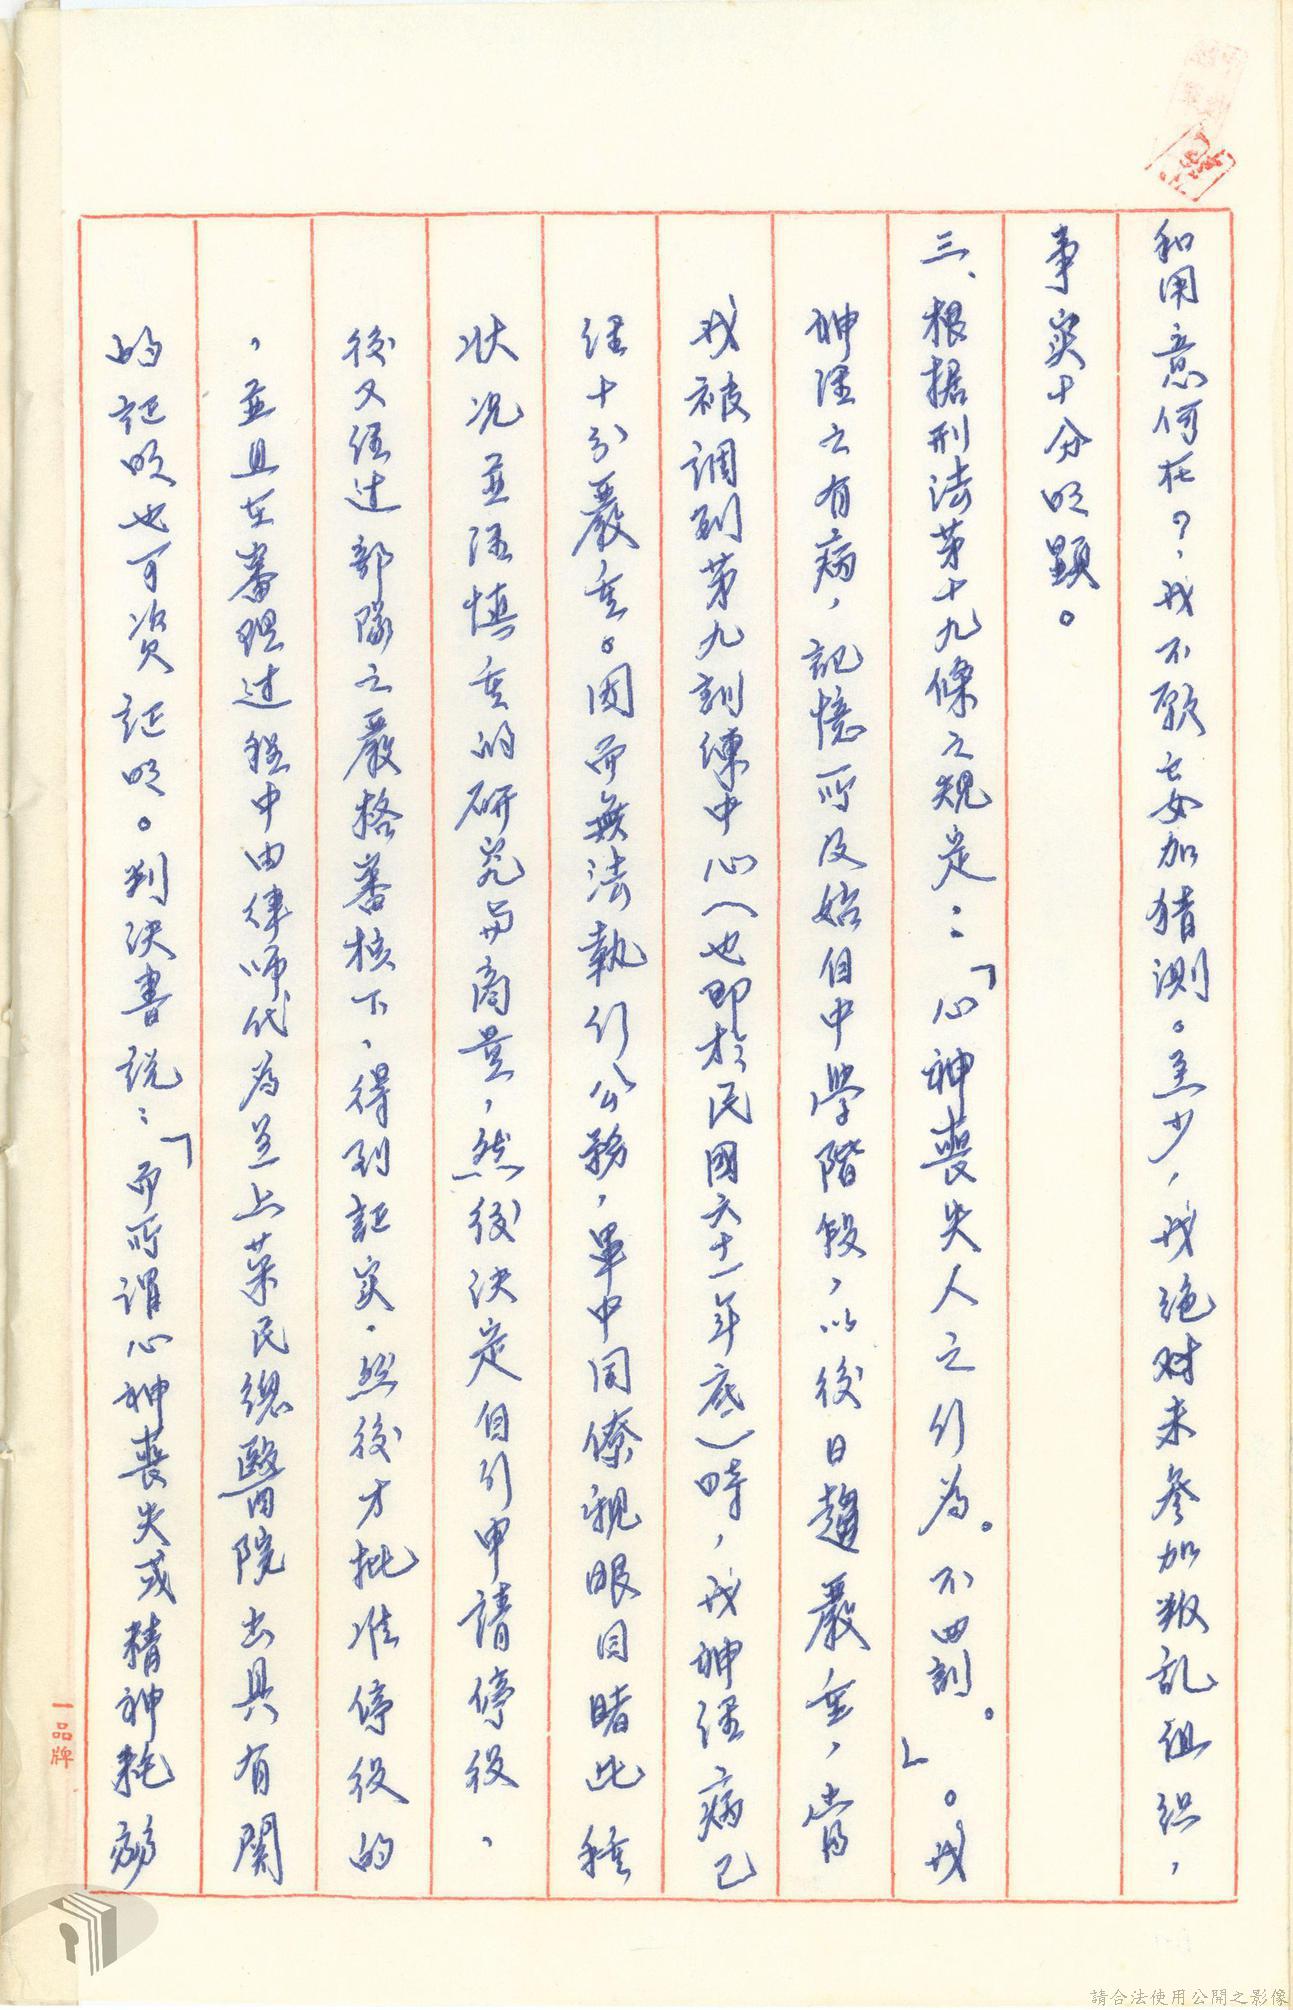 和用意何在?,我不願去妄加猜測。至少,我絕对未參加叛乱组织,
事实十分明顯。
三、根据刑法第十九條之規定:「心神喪失人之行為。不四罰。」。我
神经之有病,記憶所及始自中學階段,以後日趨嚴重,當
我被調到第九訓練中心(也即於民國六十一年底)時,我神经病已
经十分嚴重。因而無法執行公務,單中同僚親眼目睹此種
状况並经慎重的研究与商量,然後决定自行申請停役、
後又经过部隊之嚴格審核下,得到証实,然後才批准停役的
,並且在審理过程中由律師代為呈上荣民總醫院出具有関
的証明也可资証明。判决書説:「而所謂心神喪失或精神耗弱
一品牌
請合法使用公開之影像